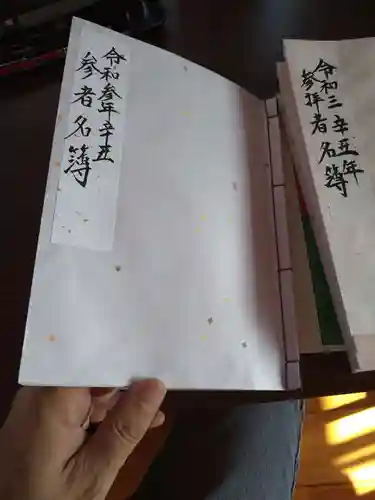 令和参年辛丑
参者名簿
令和三辛丑年
参拝者名簿